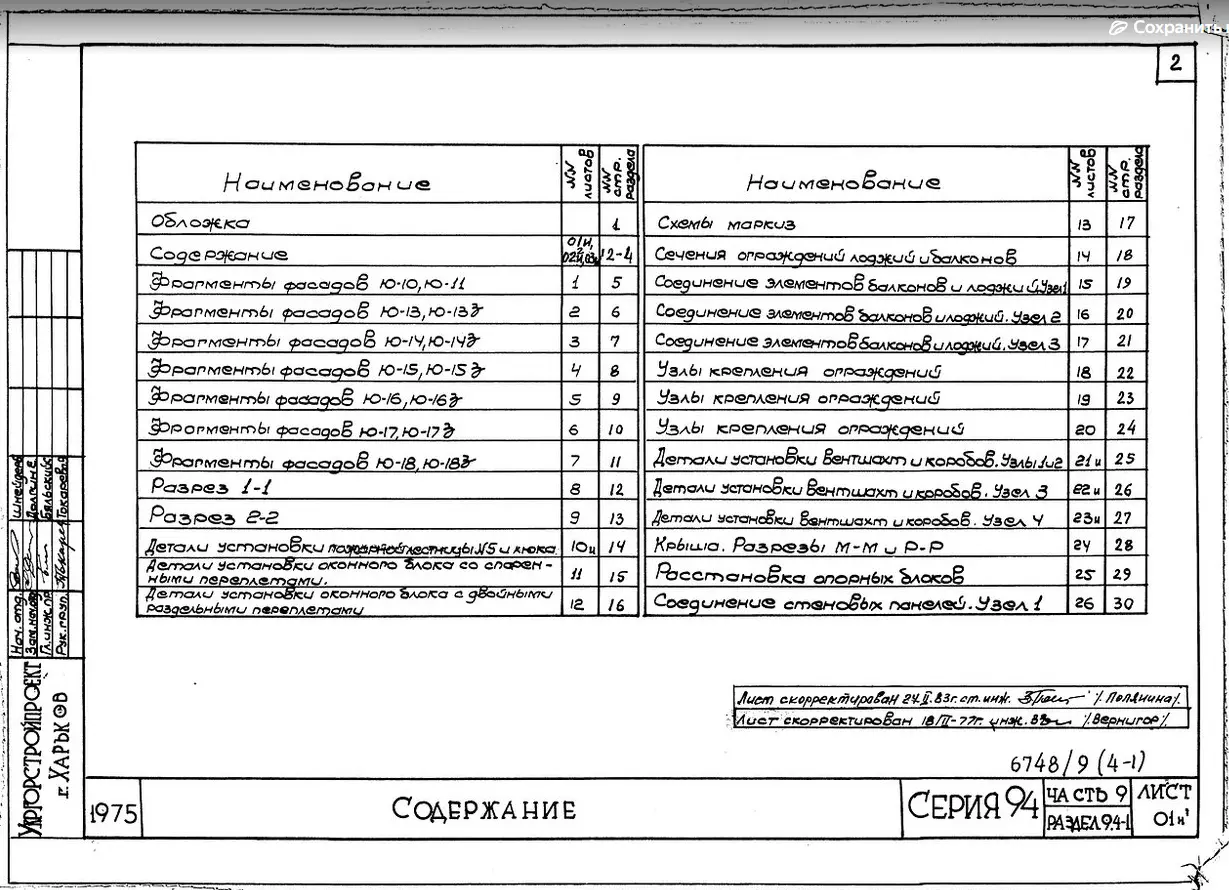 Сохранить
2
Наименование
NN листов
NN стр. раздела
Обложка 1
Содержание 01и, 02и, 03и 2-4
Фрагменты фасадов Ю-10, Ю-11 1 5
Фрагменты фасадов Ю-13, Ю-13з 2 6
Фрагменты фасадов Ю-14, Ю-14з 3 7
Фрагменты фасадов Ю-15, Ю-15з 4 8
Фрагменты фасадов Ю-16, Ю-16з 5 9
Фрагменты фасадов Ю-17, Ю-17з 6 10
Фрагменты фасадов Ю-18, Ю-18з 7 11
Разрез 1-1 8 12
Разрез 2-2 9 13
Детали установки пожарной лестницы N5 и люка. 10и 14
Детали установки оконного блока со спарен-
ными переплетами. 11 15
Детали установки оконного блока с двойными
раздельными переплетами 12 16
Наименование
NN листов
NN стр. раздела
Схемы маркиз 13 17
Сечения ограждений лоджий и балконов 14 18
Соединение элементов балконов и лоджий. Узел 1 15 19
Соединение элементов балконов и лоджий. Узел 2 16 20
Соединение элементов балконов и лоджий. Узел 3 17 21
Узлы крепления ограждений 18 22
Узлы крепления ограждений 19 23
Узлы крепления ограждений 20 24
Детали установки вентшахт и коробов. Узлы 1 и 2 21и 25
Детали установки вентшахт и коробов. Узел 3 22и 26
Детали установки вентшахт и коробов. Узел 4 23и 27
Крыша. Разрезы М-М и Р-Р 24 28
Расстановка опорных блоков 25 29
Соединение стеновых панелей. Узел 1 26 30
Нач. отд. Шнейдер
Зам. нач. отд.
Гл. инж. пр. Бельский
Рук. груп. Токарева
УкргорстройПРОЕКТ
г. Харьков
Лист скорректирован 24.II.83г. ст. инж. /Полянина/.
Лист скорректирован 18/II-77г. инж. /Вернигор/.
6748/9 (4-1)
1975
Содержание
Серия 94
Часть 9
Раздел 9.4-1
Лист
01и'